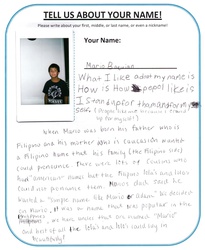 TELL US ABOUT YOUR NAME!
Please write about your first, middle, or last name, or even a nickname!
Your Name:
Mario
What I like about my name is
How is How popol like is
I Stand up for
up for myself)
When Mario was born his father who is
Filipino and his mother who is Caucasian wanted
a Filipino name that his family (the Filipino side)
could pronounce. There were lots of cousins who
had "American" names but the Filipino lola's and lolo's
could not pronounce them. Mario's dad said he
wanted a "Simple name like Mario or Adam." We decided
on Mario, it was a name that was popular in the
Philippines, we have uncles that are named "Mario"
and best of all the lola's and lolo's could say it
beautifully!